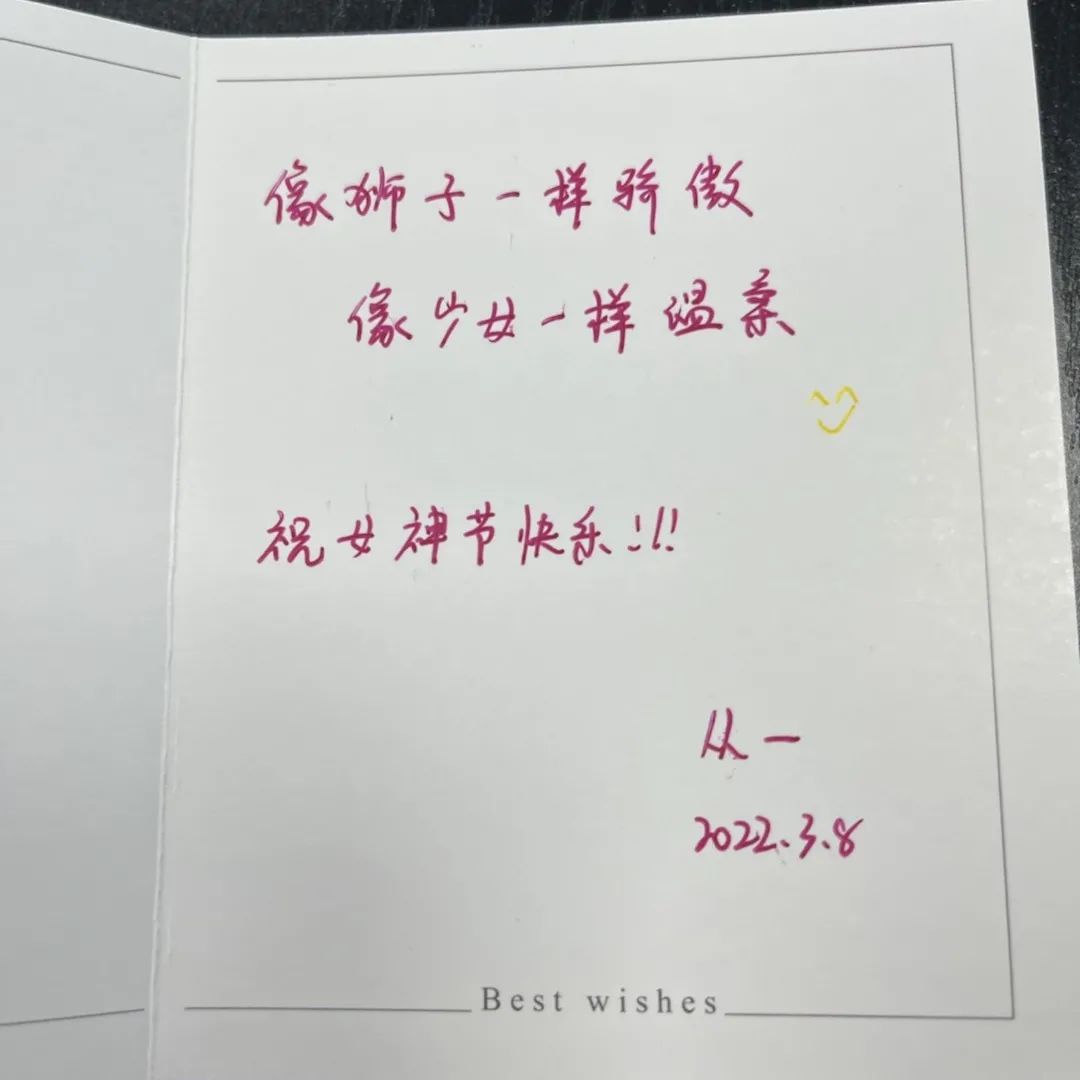 像狮子一样骄傲
像少女一样温柔
祝女神节快乐!!!
从一
2022.3.8
Best wishes